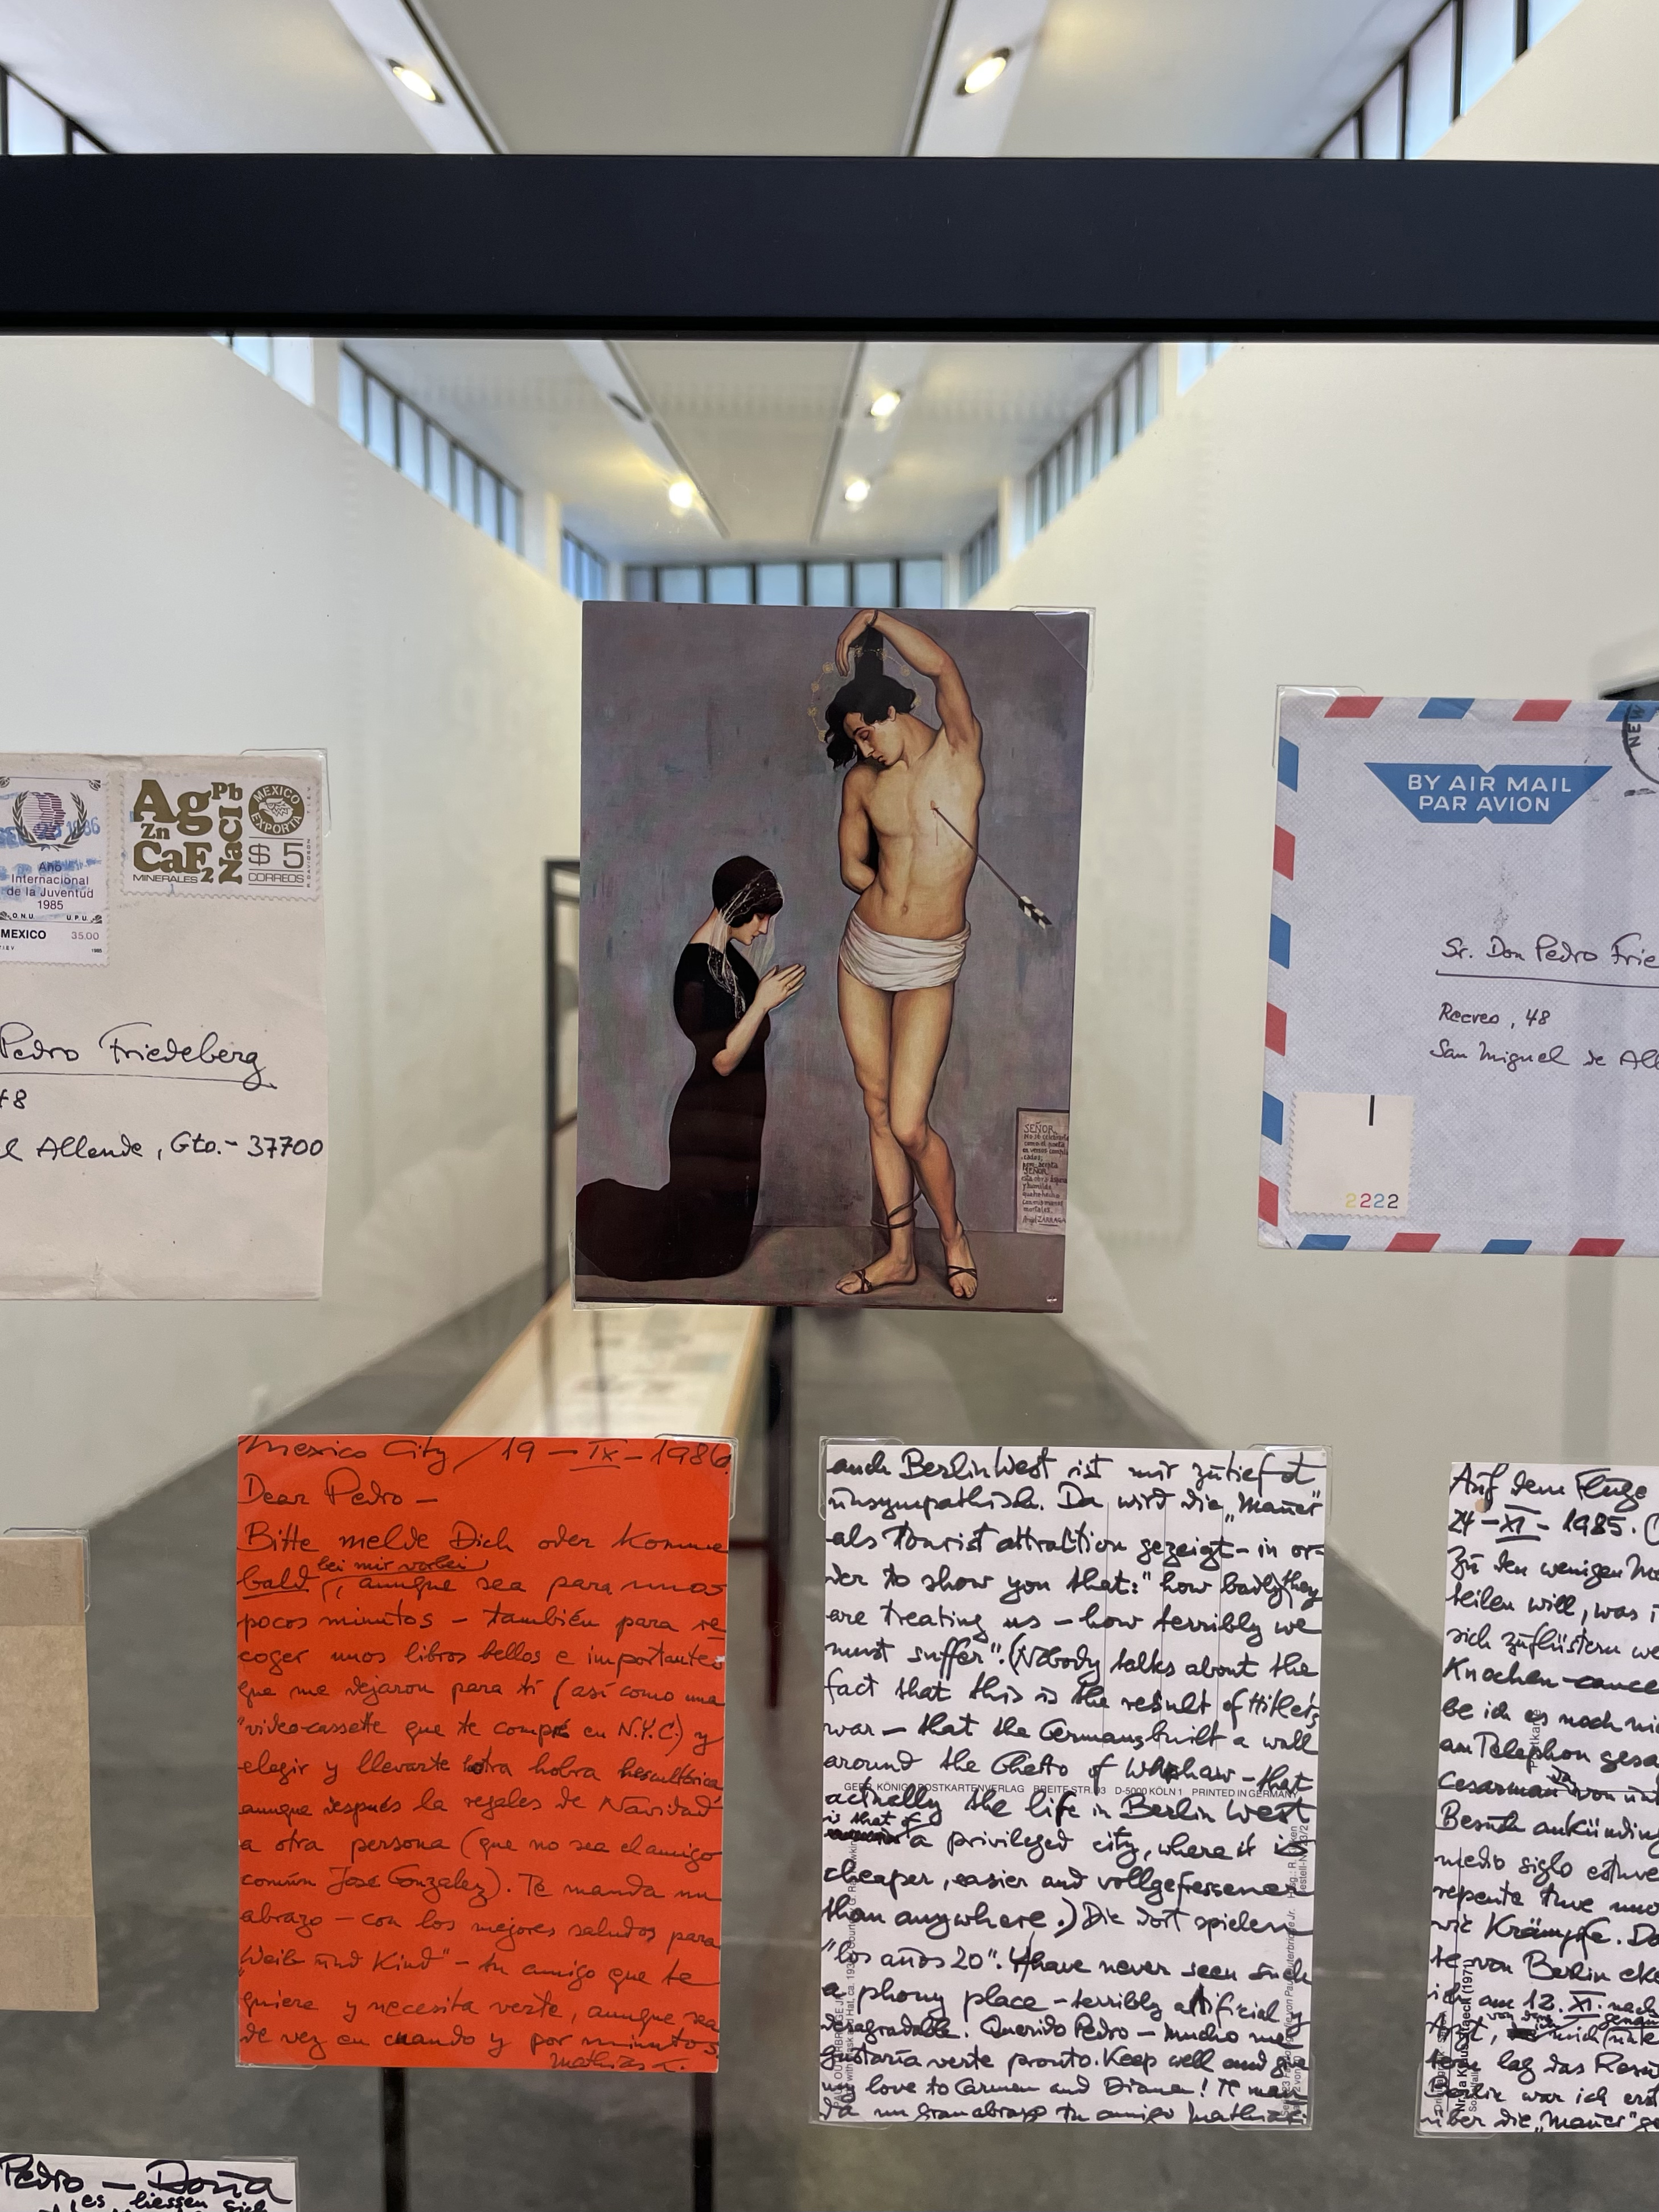 1986
Año
Internacional
de la Juventud
1985
O.N.U. U.P.U.
MEXICO 35.00
1985
Ag Pb
Zn NaCl
CaF2
MINERALES
MEXICO EXPORTA
$ 5
CORREOS
Pedro Friedeberg
48
Allende, Gto. - 37700
SEÑOR
SEÑOR
Angel ZARRAGA
NEW
BY AIR MAIL
PAR AVION
Sr. Don Pedro Frie
Recreo, 48
San Miguel de All
2222
Mexico City / 19 - IX - 1986
Dear Pedro -
Bitte melde Dich oder komme
bald bei mir vorbei, aunque sea para unos
pocos minutos - también para re-
coger unos libros bellos e importantes
que me dejaron para ti (así como una
"video-cassette que te compré en N.Y.C.) y
elegir y llevarte otra hobra hescultórica
aunque después la regales de Navidad
a otra persona (que no sea el amigo
común José Gonzalez). Te manda un
abrazo - con los mejores saludos para
"Weib und Kind" - tu amigo que te
quiere y necesita verte, aunque sea
de vez en cuando y por minutos.
Mathias
auch Berlin West ist mir zutiefst
unsympathisch. Da wird die „Mauer"
als Tourist attraction gezeigt - in or-
der to show you that: "how badly they
are treating us - how terribly we
must suffer". (Nobody talks about the
fact that this is the result of Hitler's
war - that the Germans built a wall
around the Ghetto of - that
GEBR. KÖNIG POSTKARTENVERLAG BREITE STR. 93 D-5000 KÖLN 1 PRINTED IN GERMANY
actually the life in Berlin West
is that of a privileged city, where it is
cheaper, easier and vollgefressener
than anywhere.) Die dort spielen
"los años 20". I have never seen such
a phony place - terribly artificial y
desagradable. Querido Pedro - mucho me
gustaría verte pronto. Keep well and give
my love to Carmen and Diana! Te man-
da un gran abrazo tu amigo Mathias.
Auf dem Fluge
24 - XI - 1985.
Zu den wenigen
teilen will, was
sich zuflüstern
Knochen-cance
be ich es noch
am Telephon gesa
Cesarman von
Besuch ankündig
medio siglo estuve
repente tuve
wie Krämpfe.
te von Berlin
ich am 12. XI. nach
Arzt, mich
lag das
Berlin war ich erst
über die „Mauer"
Postkarte
(1971)
Pedro - Doña
es liessen sich